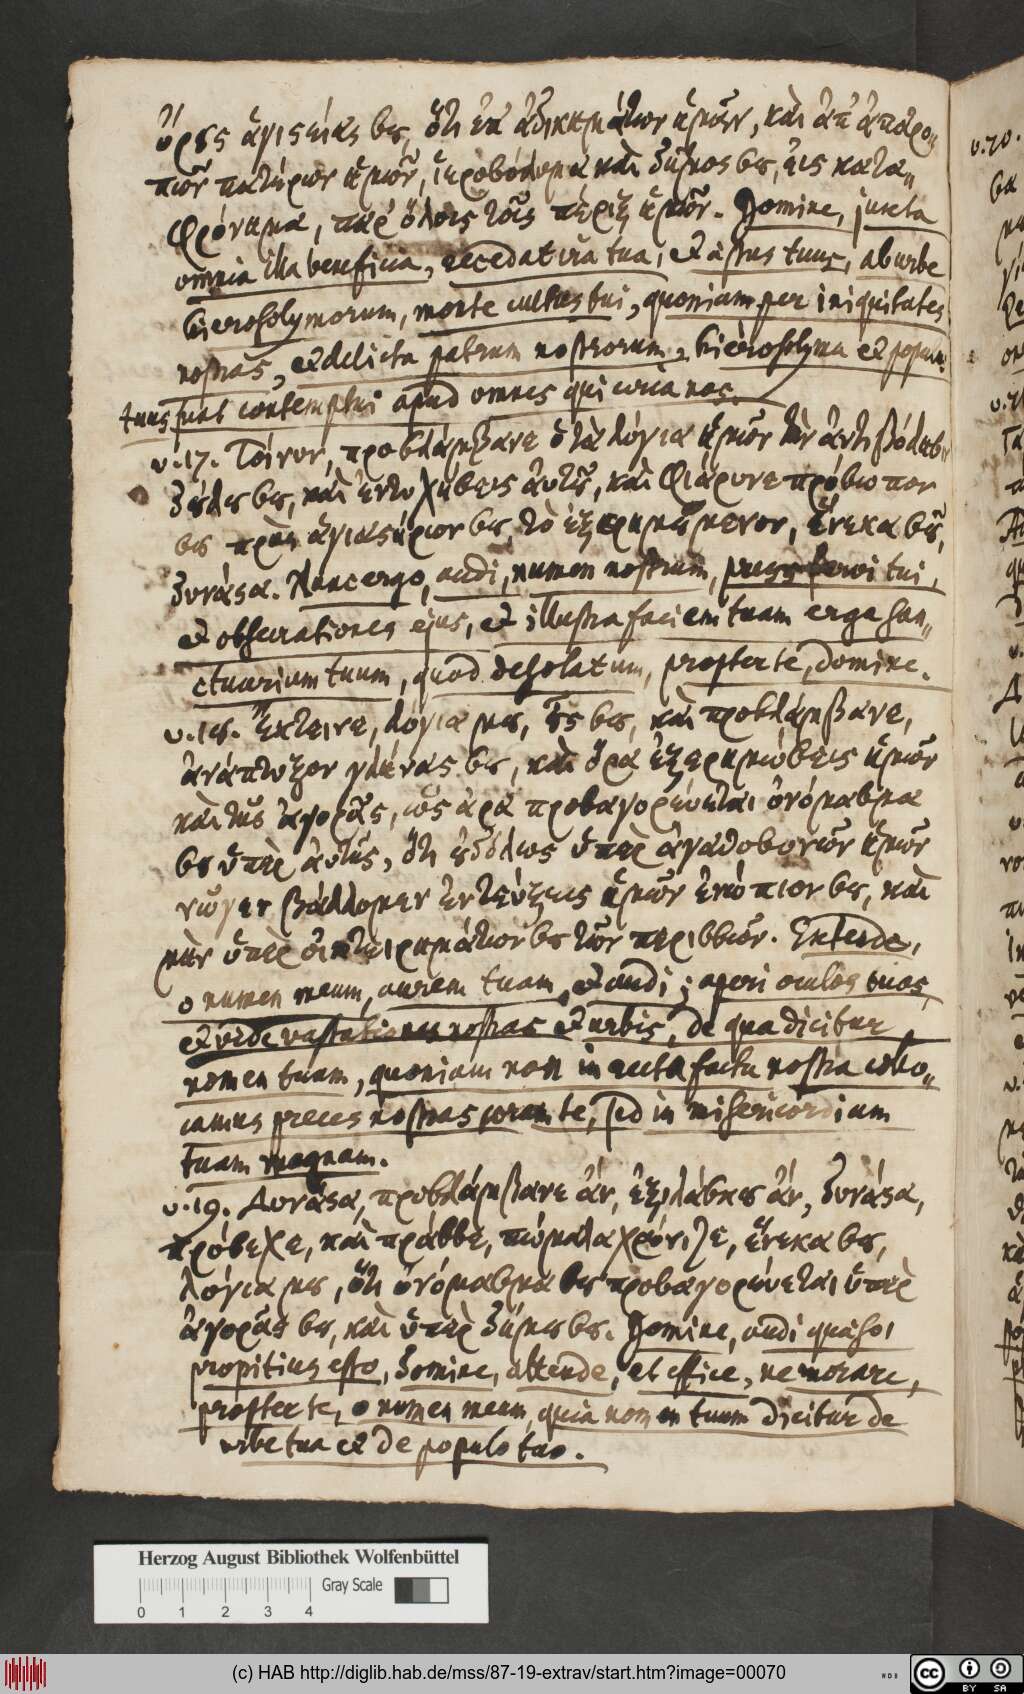 ὄρους ἁγιστείας σου, ὅτι ἐπ' ἀδικημάτων ἡμῶν, καὶ ἀπ'
πατέρων ἡμῶν, Ἱεροσόλυμα καὶ δῆμός σου, εἰς κατα„
φρόνημα, παρ' ὅλοις τοῖς πέριξ ἡμῶν. Domine, juxta
omnia illa benefica, recedat ira tua, et æstus tuus, ab urbe
hierosolymorum, monte cultus tui, quoniam per iniquitates
nostras, et delicta patrum nostrorum, hierosolyma et populus
tuus sunt contemptui apud omnes qui circa nos.
v. 17. Τοίνυν, προσλάμβανε ὦ τὰ λόγια ἡμῶν τὴν
δούλου σου, καὶ ἐντυχήσεις αὐτοῦ, καὶ φιάρυνε πρόσωπον
σου πρὸς ἁγιαστήριον σου, τὸ ἐξερημούμενον, ἕνεκα σοῦ,
δυνάστα. Nunc ergo, audi, numen nostrum, preces servi tui,
et obsecrationes ejus, et illustra faciem tuam erga san„
ctuarium tuum, quod desolatum, propter te, domine.
v. 18. Ἔκτεινε, λόγια μου, οὖς σου, καὶ προσλάμβανε,
ἀνάπτυξον γλήνας σου, καὶ ὅρα ἐξερημώσεις ἡμῶν
καὶ τῆς ἀγορᾶς, ὡς ἄρα προσαγορεύεται ὀνόμασμα
σου ὑπὲρ αὐτῆς, ὅτι οὐδόλως ὑπὲρ ἀγαθοσυνῶν ἡμῶν
νῶϊν βάλλομεν ἐντεύξεις ἡμῶν ἐνώπιον σου, καὶ
μὴν ὑπὲρ οἰκτειρημάτων σου τῶν περισσῶν. Extende,
o numen meum, aurem tuam, et audi; aperi oculos tuos,
et vide vastationes nostras et urbis, de qua dicitur
nomen tuum, quoniam non in recta facta nostra collo„
camus preces nostras coram te, sed in misericordiam
tuam magnam.
v. 19. Δυνάστα, προσλάμβανε ἄν, ἐξιλάσκου ἄν, δυνάστα,
πρόσεχε, καὶ πράσσε, πώμαλα χρόνιζε, ἕνεκα σου,
λόγια μου, ὅτι ὀνόμασμα σου προσαγορεύεται ὑπὲρ
ἀγορᾶς σου, καὶ ὑπὲρ δήμου σου. Domine, audi quæso,
propitius esto, domine, attende, et effice, ne morare,
propter te, o numen meum, quia nomen tuum dicitur de
urbe tua et de populo tuo.
Herzog August Bibliothek Wolfenbüttel
Gray Scale
0 1 2 3 4
(c) HAB http://diglib.hab.de/mss/87-19-extrav/start.htm?image=00070
WDB
cc BY SA